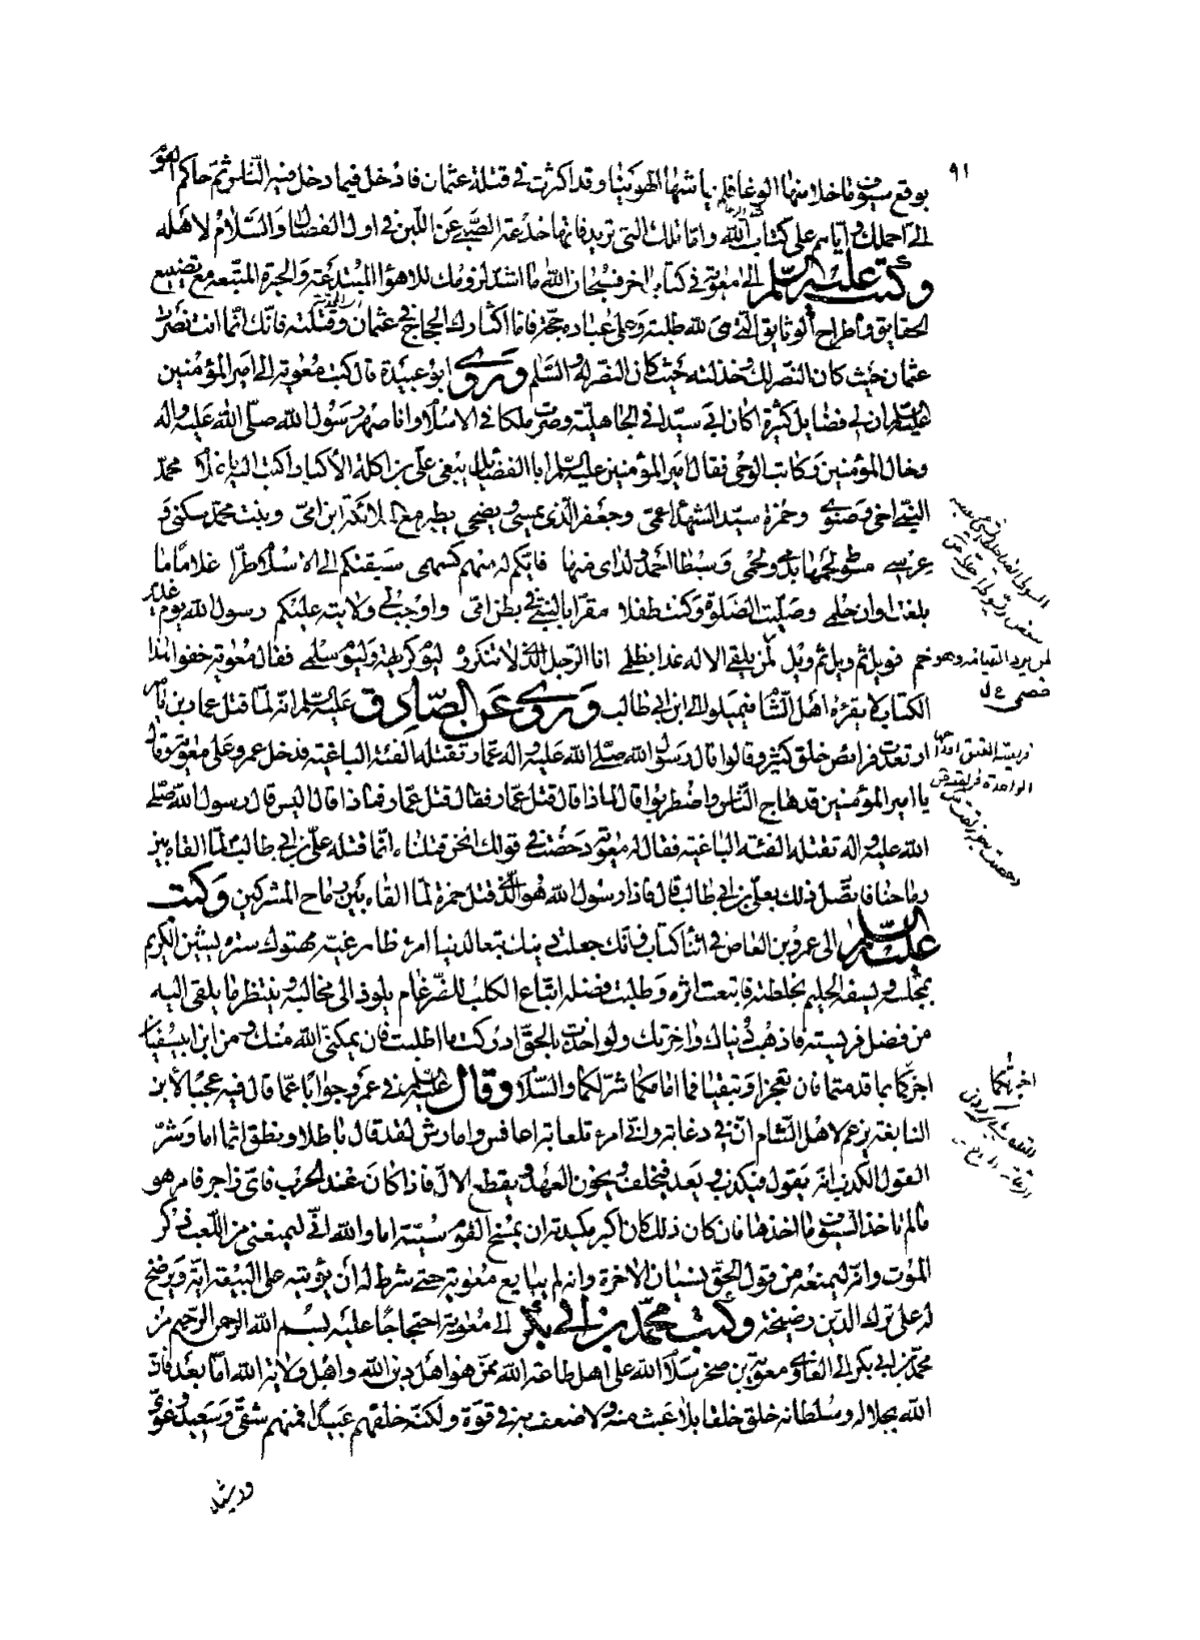 ٩١
بوقع سيوف ما خلا منها الوغا فلم يماشها الهوينا وقد اكثرت في قتلة عثمان فادخل فيما دخل فيه الناس ثم حاكم القوم
الي احملك واياهم على كتاب الله واما تلك التي تريد فانها خدعة الصبي عن اللبن في اول الفصال والسلام لاهله
وكتب عليه السلم الى معوية في كتاب اخر فسبحان الله ما اشد لزومك للاهواء المبتدعة والحيرة المتبعة مع تضييع
الحقايق واطراح الوثايق التي هى لله طلبة وعلى عباده حجة فاما اكثارك الحجاج في عثمان وقتلته فانك انما انت نصرت
عثمان حيث كان النصر لك وخذلته حيث كان النصر له والسلم وروى ابو عبيدة قال كتب معوية الى امير المؤمنين
عليه السلم ان لي فضايل كثيرة كان ابي سيدا في الجاهلية وصرت ملكا في الاسلام وانا صهر رسول الله صلى الله عليه واله
وخال المؤمنين وكاتب الوحي فقال امير المؤمنين عليه السلم ابا الفضايل يبغي علي بن اكلة الأكباد اكتب اليه يا غلام محمد
النبي اخي وصنوي وحمزة سيد الشهداء عمي وجعفر الذي يمسي ويضحي يطير مع الملائكة ابن امي وبنت محمد سكني و
عرسي مشوب لحمها بدمي ولحمي وسبطا احمد ولداى منها فايكم له سهم كسهمي سبقتكم الى الاسلام طرا غلاما ما
بلغت اوان حلمي وصليت الصلوة وكنت طفلا مقرا بالنبي في بطن امي واوجب لي ولايته عليكم رسول الله يوم غدير
خم فويل ثم ويل ثم ويل لمن يلقى الاله غدا بظلمي انا الرجل الذي لا تنكروه ليوم كريهة وليوم سلمي فقال معوية خفوا هذا
الكتاب لا يقرءه اهل الشام فيميلوا الى ابن ابي طالب وروى عن الصادق عليه السلم انه لما قتل عمار بن ياسر
ارتعدت فرائص خلق كثير وقالوا قال رسول الله صلى الله عليه واله عمار تقتله الفئة الباغية فدخل عمرو على معوية وقال
يا امير المؤمنين قد هاج الناس واضطربوا قال لماذا قال قتل عمار فقال قتل عمار فماذا قال اليس قال رسول الله صلى
الله عليه واله تقتله الفئة الباغية فقال له معوية دحضت في قولك انحن قتلناه انما قتله علي بن ابي طالب لما القاه بين
رماحنا فاتصل ذلك بعلي بن ابي طالب قال فاذا رسول الله هو الذي قتل حمزة لما القاه بين رماح المشركين وكتب
عليه السلم الى عمرو بن العاص في اثناء كتاب فانك جعلت دينك تبعا لدنيا امرء ظاهر غيه مهتوك ستره يشين الكريم
بمجلسه ويسفه الحليم بخلطته فاتبعت اثره وطلبت فضله اتباع الكلب للضرغام يلوذ الى مخالبه وينتظر ما يلقى اليه
من فضل فريسته فاذهبت دنياك واخرتك ولو اخذت بالحق ادركت ما طلبت فان يمكني الله منك ومن ابن ابي سفيان
اجزكما بما قدمتما فان تعجزا وتبقيا فما امامكما شر لكما والسلام وقال عليه السلم في عمرو جوابا عما قال فيه عجبا لابن
النابغة يزعم لاهل الشام ان في دعابة واني امرء تلعابة اعافس وامارس لقد قال باطلا ونطق اثما اما وشر
القول الكذب انه يقول فيكذب ويعد فيخلف ويخون العهد ويقطع الال فاذا كان عند الحرب فاي زاجر وامر هو
ما لم تاخذ السيوف مآخذها فان كان ذلك كان اكبر مكيدته ان يمنح القوم سبته اما والله اني ليمنعني من اللعب ذكر
الموت وانه ليمنعه من قول الحق نسيان الاخرة وانه لم يبايع معوية حتى شرط له أن يؤتيه على البيعة اتية ويرضخ
له على ترك الدين رضيخة وكتب محمد بن ابي بكر الى معوية احتجاجا عليه بسم الله الرحمن الرحيم من
محمد بن ابي بكر الى الغاوي معوية بن صخر سلام الله على اهل طاعة الله ممن هو اهل دين الله واهل ولاية الله اما بعد فان
الله بجلاله وسلطانه خلق خلقا بلا عبث منه ولا ضعف به في قوة ولكنه خلقهم عبيدا فمنهم شقي وسعيد وغوي
ورشيد